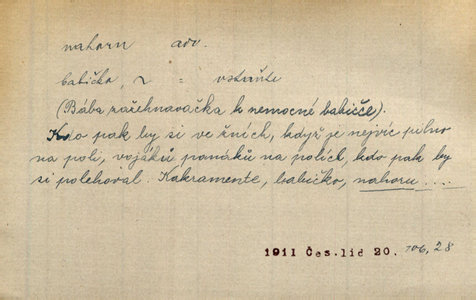 nahoru adv.
babičko, = vstaňte
(Bába zařehnavačka k nemocné babičče).
Kdo pak by si ve žních, když je nejvíc pilno
na poli, vojáků panáků na polích, kdo pak by
si polehoval. Kakramente, babičko, nahoru....
1911 Čes. lid 20. 706, 28